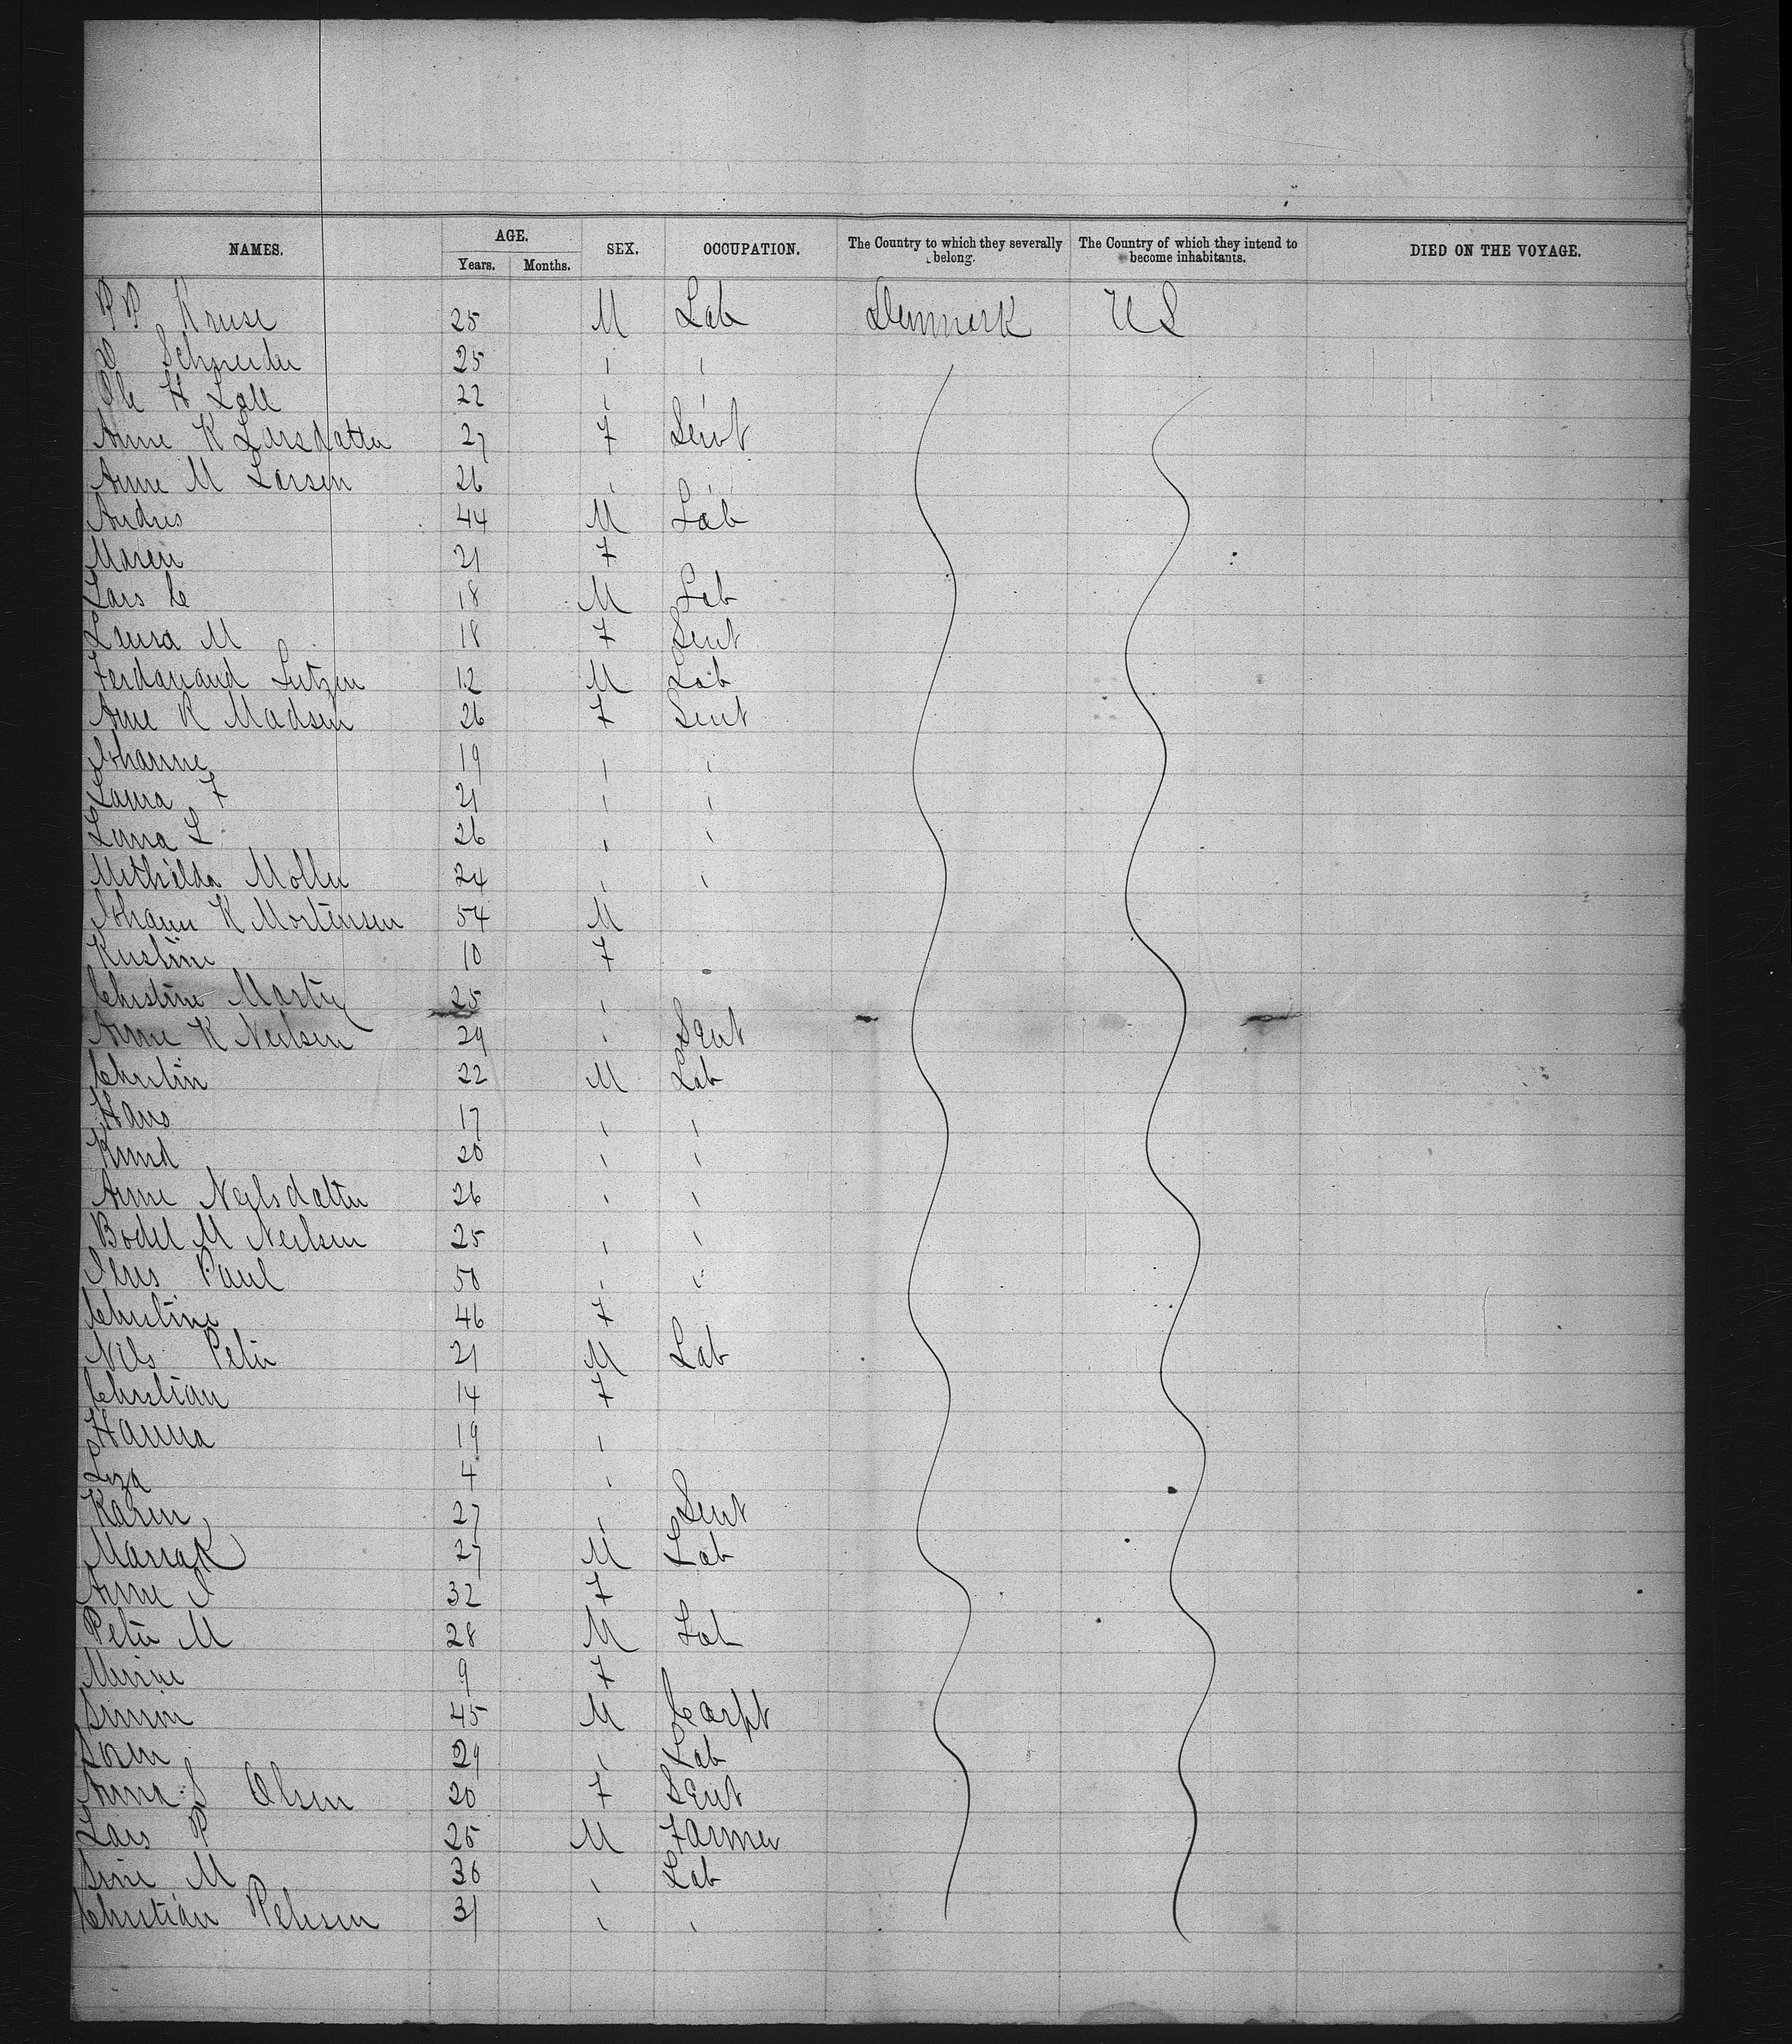 NAMES. AGE. SEX. OCCUPATION. The Country to which they severally belong. The Country of which they intend to become inhabitants. DIED ON THE VOYAGE.
Years. Months.
P P Kruse 25 M Lab Denmark U S
Schneider 25 " "
Ole H Lall 22 " "
Anne K Larsdatter 27 F Servt
Anne M Larsen 26 " "
Andres 44 M Lab
Maren 21 F
Lars C 18 M Lab
Laura M 18 F Servt
Ferdanand Lutzen 12 M Lab
Ane K Madsen 26 F Servt
Johanne 19 " "
Laura F 21 " "
Laura L 26 " "
Mathilda Moller 24 " "
Johann K Mortensen 54 M
Kirstine 10 F
Christine Marty 25 "
Anne K Neilsen 29 " Servt
Christin 22 M Lab
Hans 17 " "
Knud 20 " "
Anne Neilsdatter 26 " "
Bodel M Neilsen 25 " "
Jens Paul 50 " "
Christine 46 F
Nils Peter 21 M Lab
Christian 14 F
Hanna 19 "
Liza 4 "
Karen 27 " Servt
Maria K 27 M Lab
Anne 32 F
Peter M 28 M Lab
9 F
Simon 45 M Carpt
Soren 29 " Lab
Anna S Olsen 20 F Servt
Lars P 25 M Farmer
Sine M 30 " Lab
Christian Petersen 31 " "